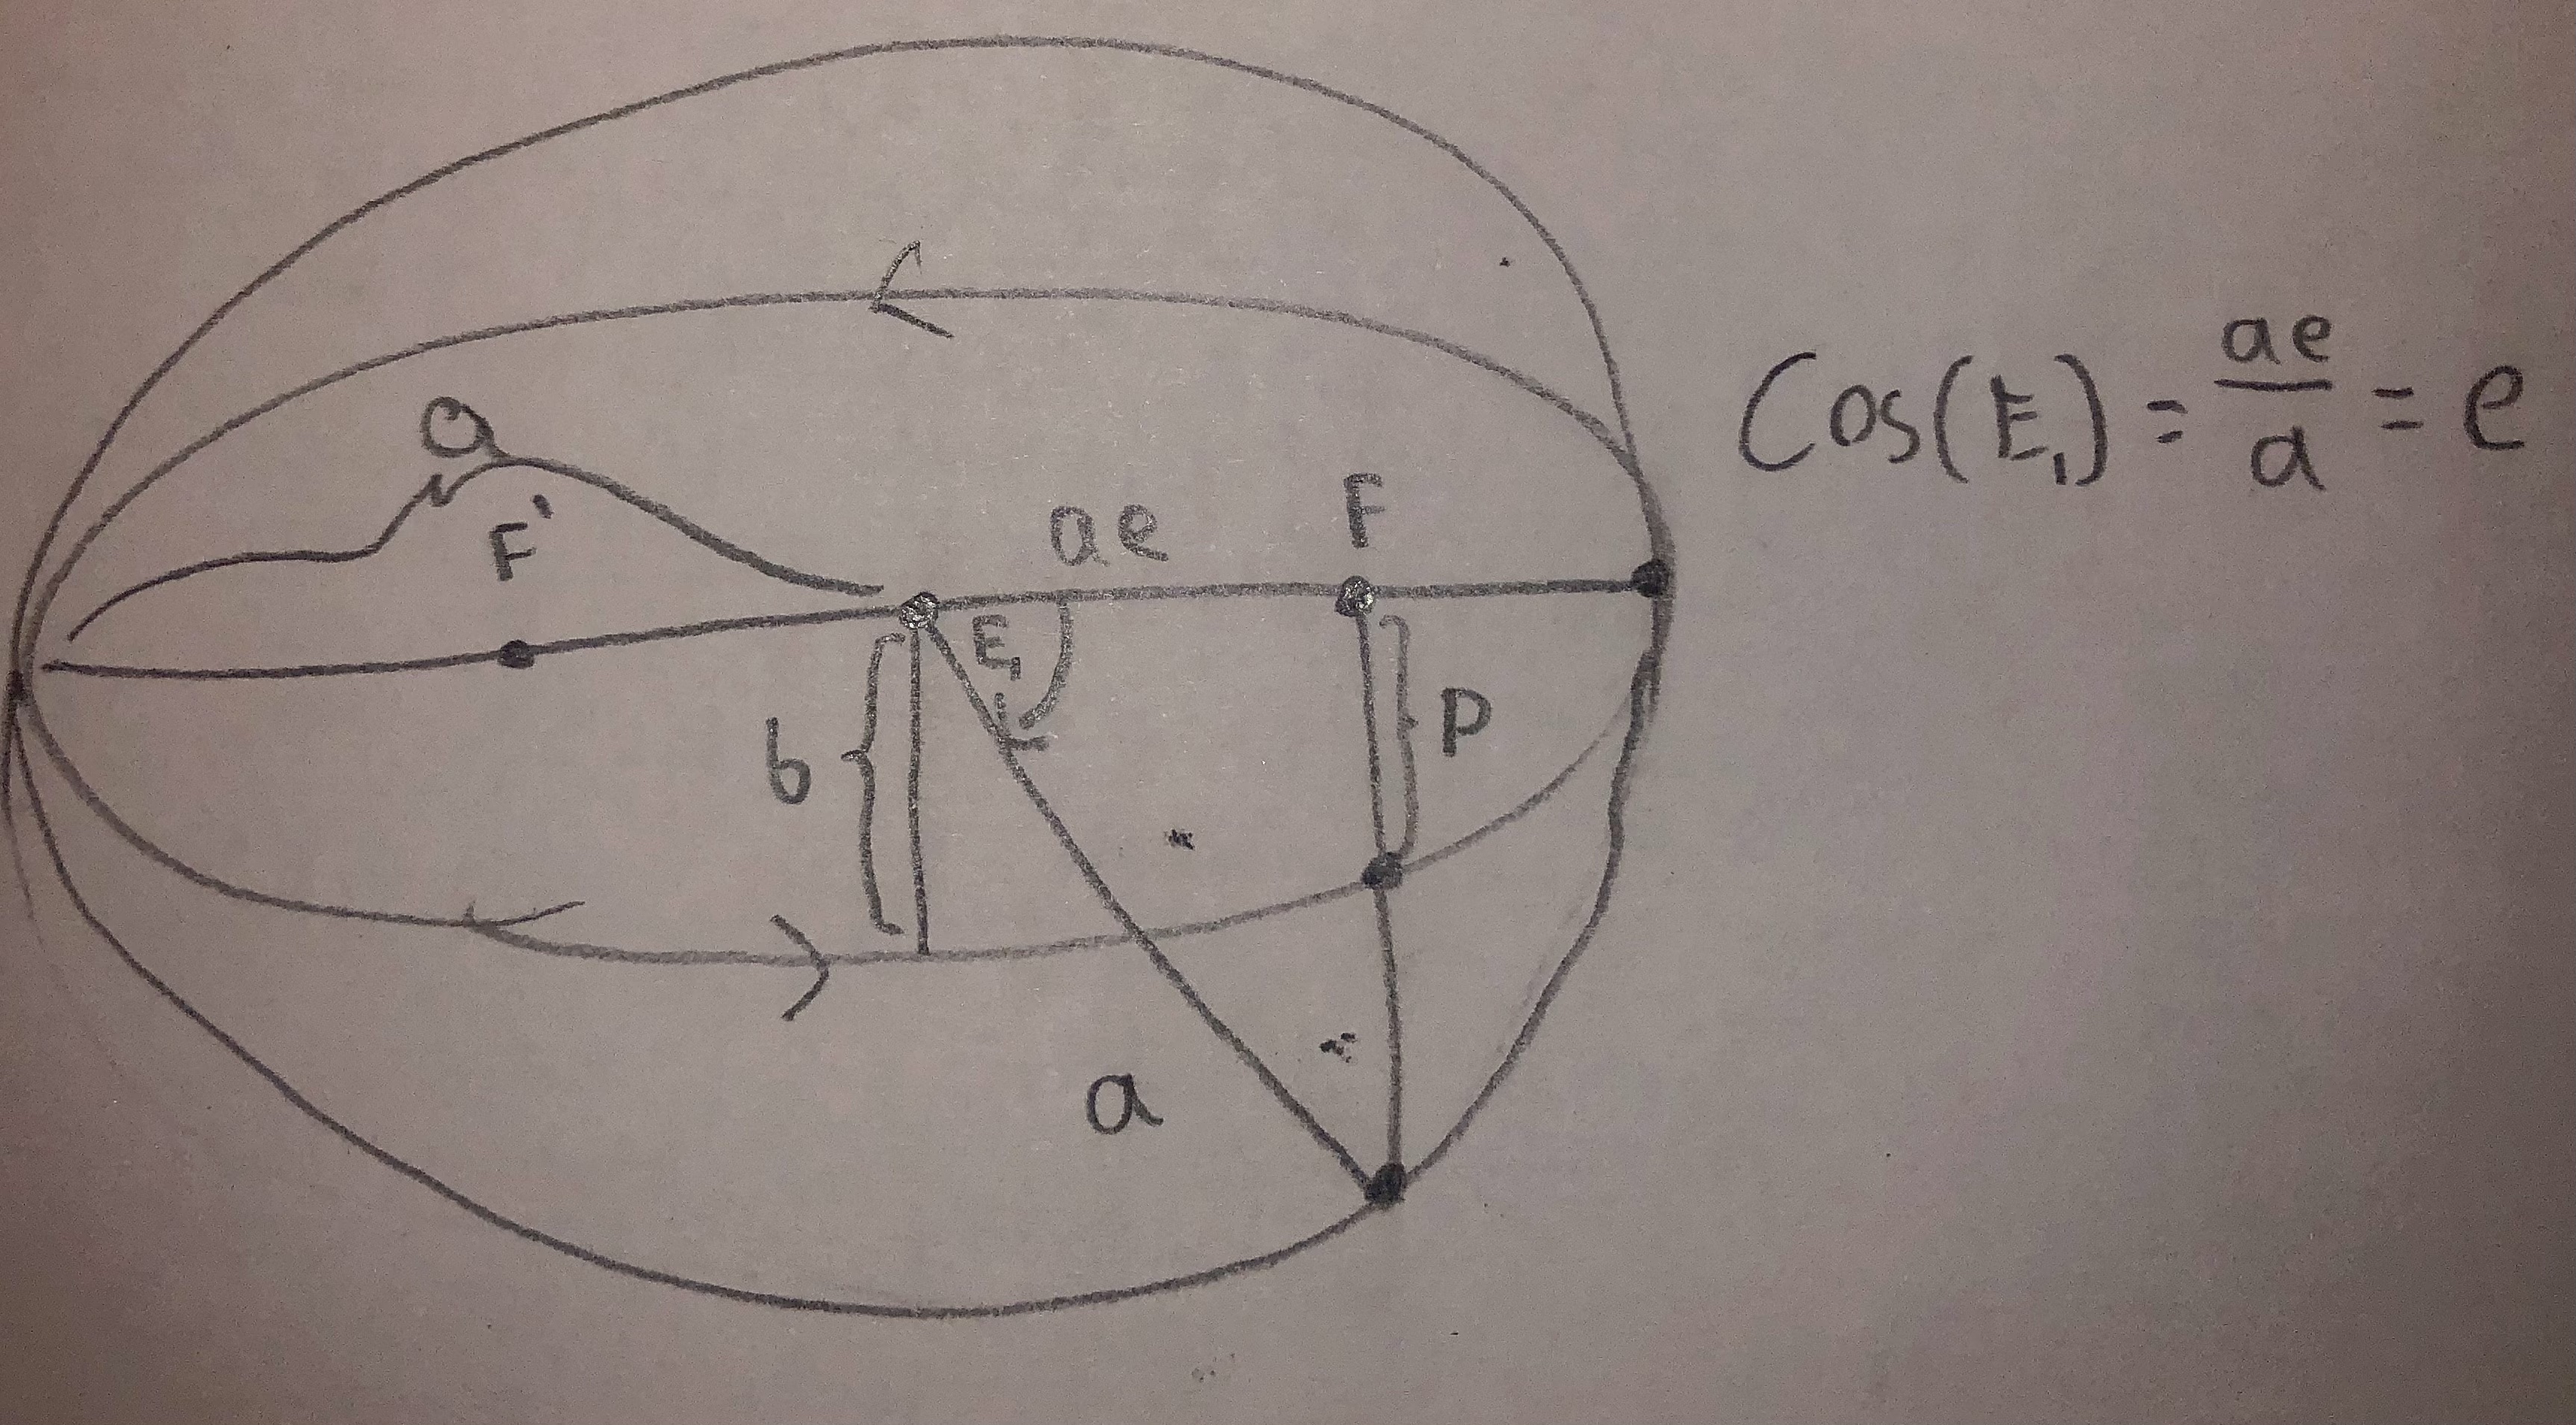 a
F'
ae
F
E₁
b
p
a
Cos(E₁) = ae/a = e